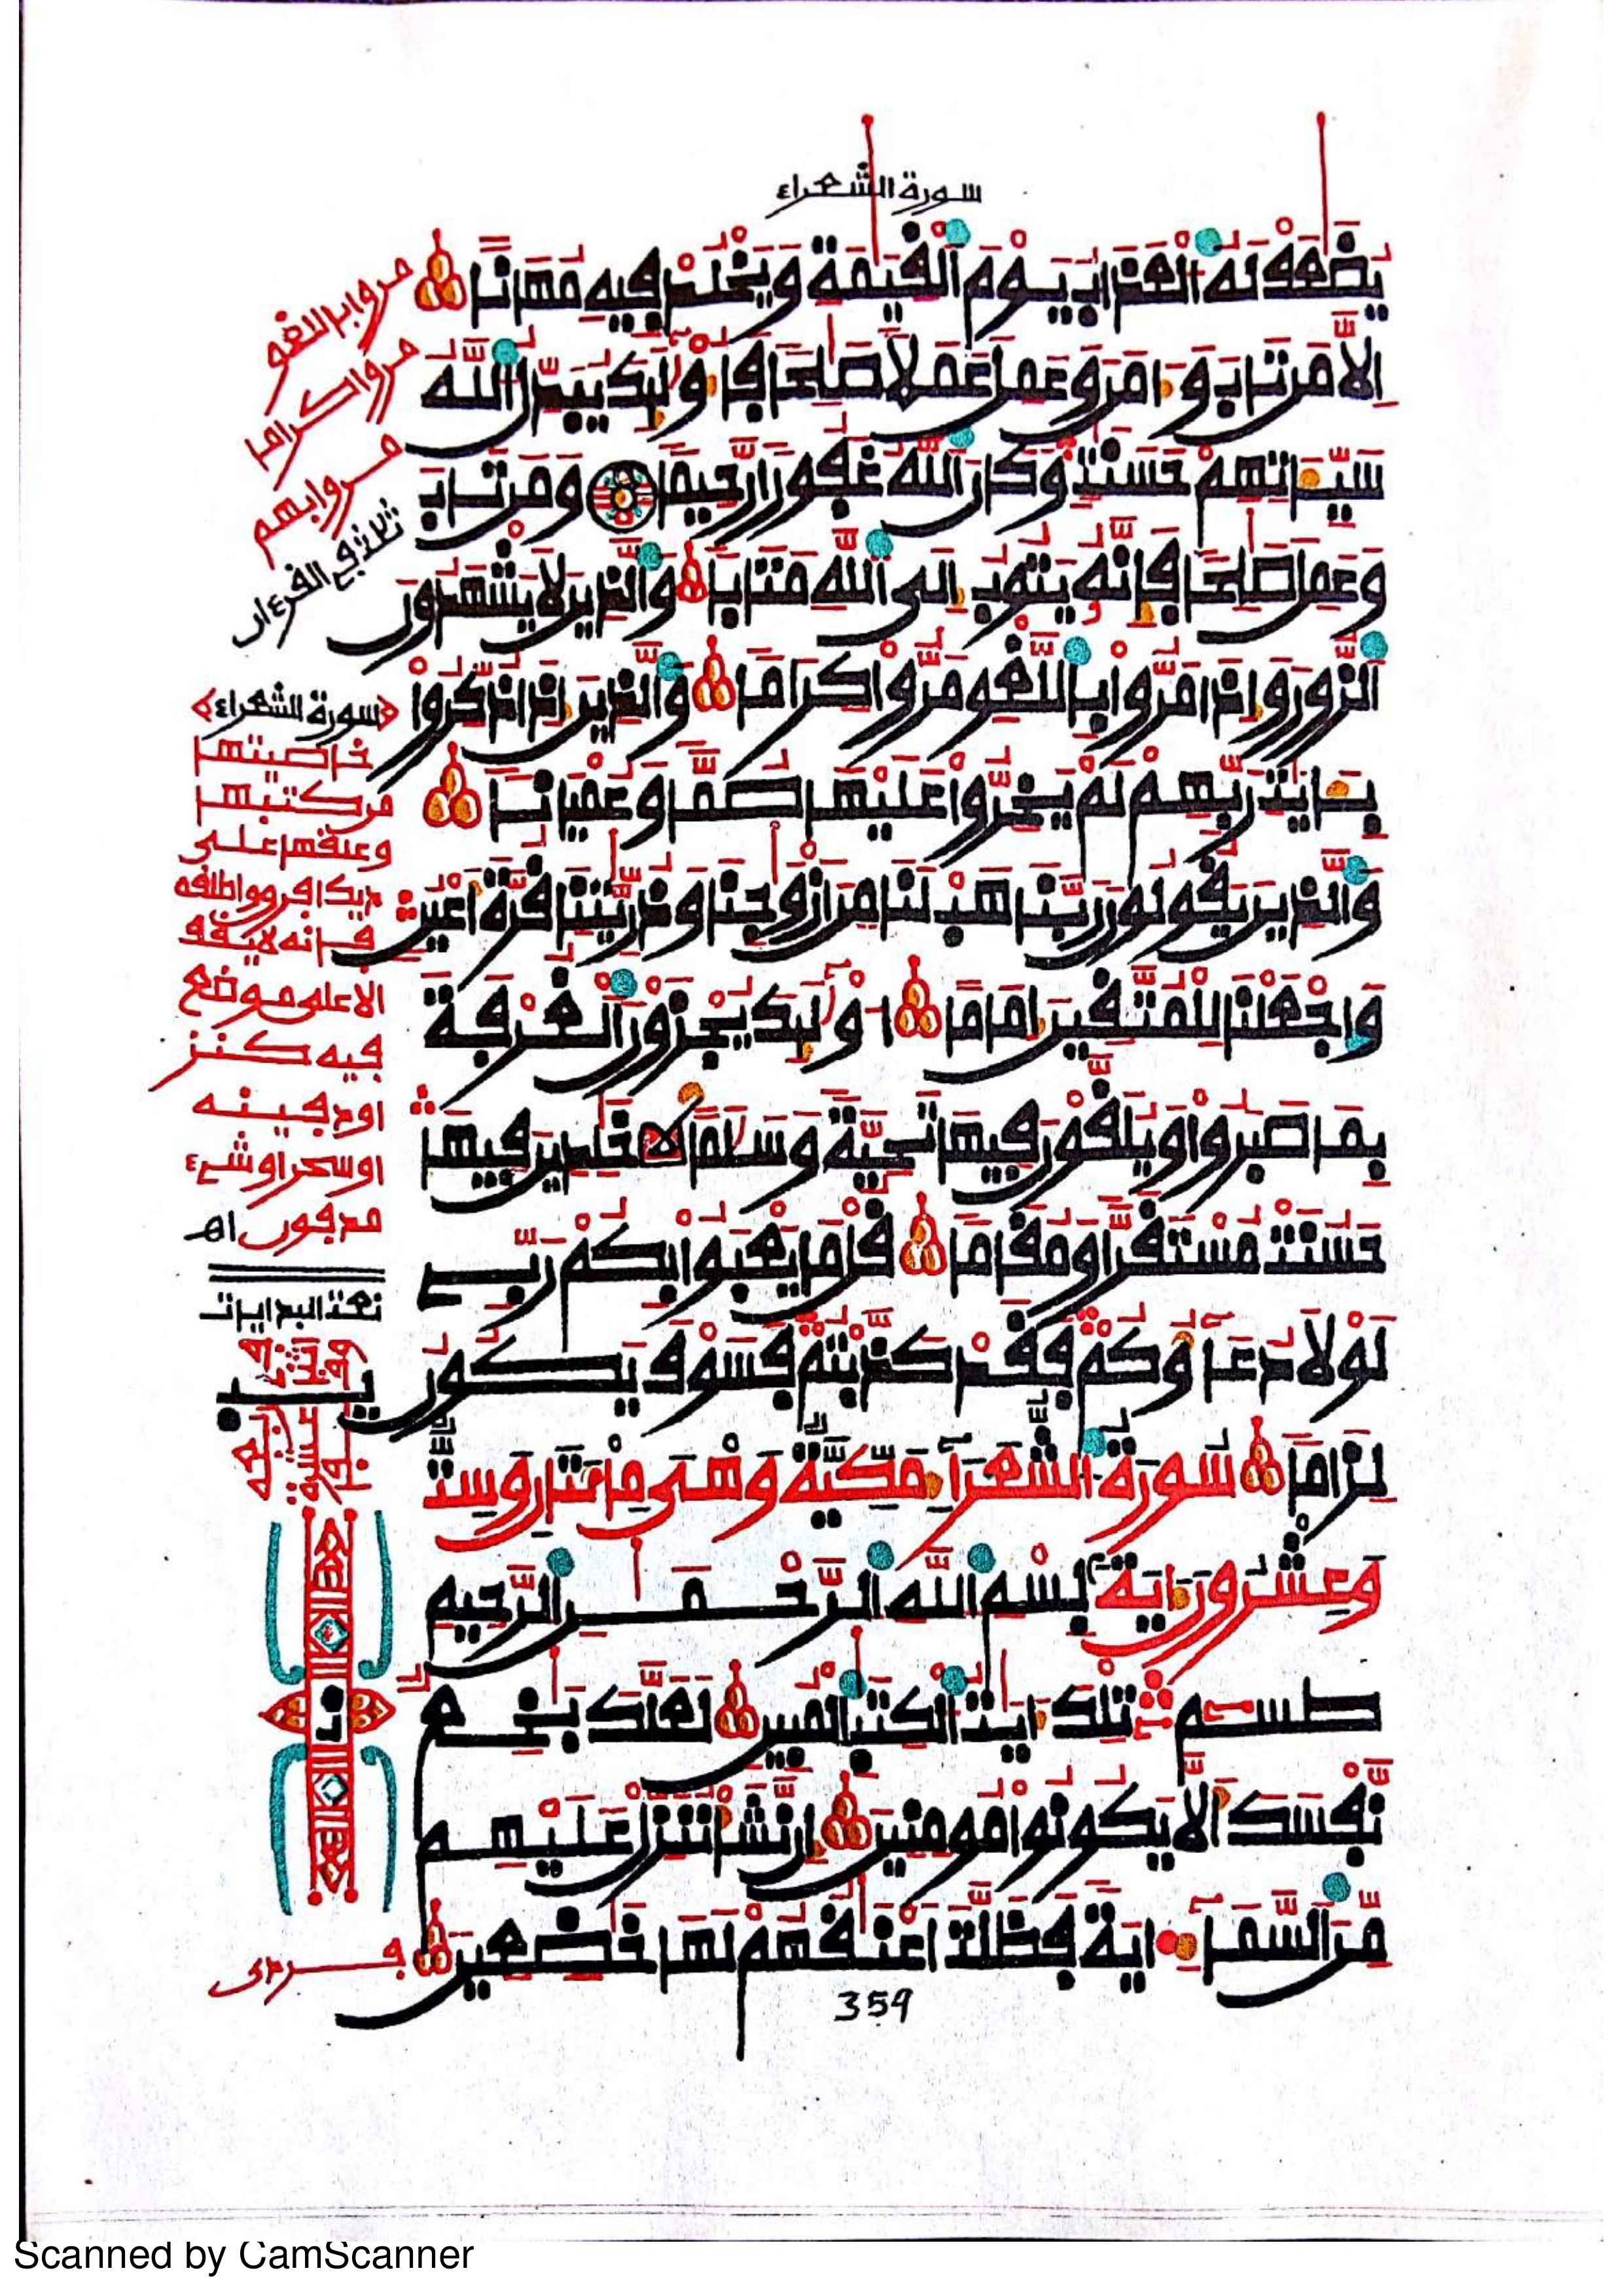 سورة الشعراء
يُضَٰعَفْ لَهُ الْعَذَابُ يَوْمَ الْقِيَٰمَةِ وَيَخْلُدْ فِيهِ مُهَانًا
إِلَّا مَن تَابَ وَءَامَنَ وَعَمِلَ عَمَلًا صَٰلِحًا فَأُوْلَٰئِكَ يُبَدِّلُ اللَّهُ
سَيِّـَٔاتِهِمْ حَسَنَٰتٍ وَكَانَ اللَّهُ غَفُورًا رَّحِيمًا وَمَن تَابَ
وَعَمِلَ صَٰلِحًا فَإِنَّهُ يَتُوبُ إِلَى اللَّهِ مَتَابًا وَالَّذِينَ لَا يَشْهَدُونَ
الزُّورَ وَإِذَا مَرُّوا بِاللَّغْوِ مَرُّوا كِرَامًا وَالَّذِينَ إِذَا ذُكِّرُوا
بِـَٔايَٰتِ رَبِّهِمْ لَمْ يَخِرُّوا عَلَيْهَا صُمًّا وَعُمْيَانًا
وَالَّذِينَ يَقُولُونَ رَبَّنَا هَبْ لَنَا مِنْ أَزْوَٰجِنَا وَذُرِّيَّٰتِنَا قُرَّةَ أَعْيُنٍ
وَاجْعَلْنَا لِلْمُتَّقِينَ إِمَامًا أُوْلَٰئِكَ يُجْزَوْنَ الْغُرْفَةَ
بِمَا صَبَرُوا وَيُلَقَّوْنَ فِيهَا تَحِيَّةً وَسَلَٰمًا خَٰلِدِينَ فِيهَا
حَسُنَتْ مُسْتَقَرًّا وَمُقَامًا قُلْ مَا يَعْبَؤُا بِكُمْ رَبِّي
لَوْلَا دُعَاؤُكُمْ فَقَدْ كَذَّبْتُمْ فَسَوْفَ يَكُونُ
لِزَامًا سُورَةُ الشُّعَرَاءِ مَكِّيَّةٌ وَهِيَ مِائَتَانِ وَسِتٌّ
وَعِشْرُونَ ءَايَةً بِسْمِ اللَّهِ الرَّحْمَٰنِ الرَّحِيمِ
طسم تِلْكَ ءَايَٰتُ الْكِتَٰبِ الْمُبِينِ لَعَلَّكَ بَٰخِعٌ
نَّفْسَكَ أَلَّا يَكُونُوا مُومِنِينَ إِن نَّشَأْ نُنَزِّلْ عَلَيْهِم
مِّنَ السَّمَاءِ ءَايَةً فَظَلَّتْ أَعْنَٰقُهُمْ لَهَا خَٰضِعِينَ
359
مروا باللغو
مروا كراما
مروا بهم
ثلاث في القرءان
سورة الشعراء
خاصيتها
من كتبها
وعلقها على
ديك افرق واطلقه
فإنه لا يقف
الا على موضع
فيه كنز
او دفينة
او سحر او شيء
مدفون اهـ
Scanned by CamScanner